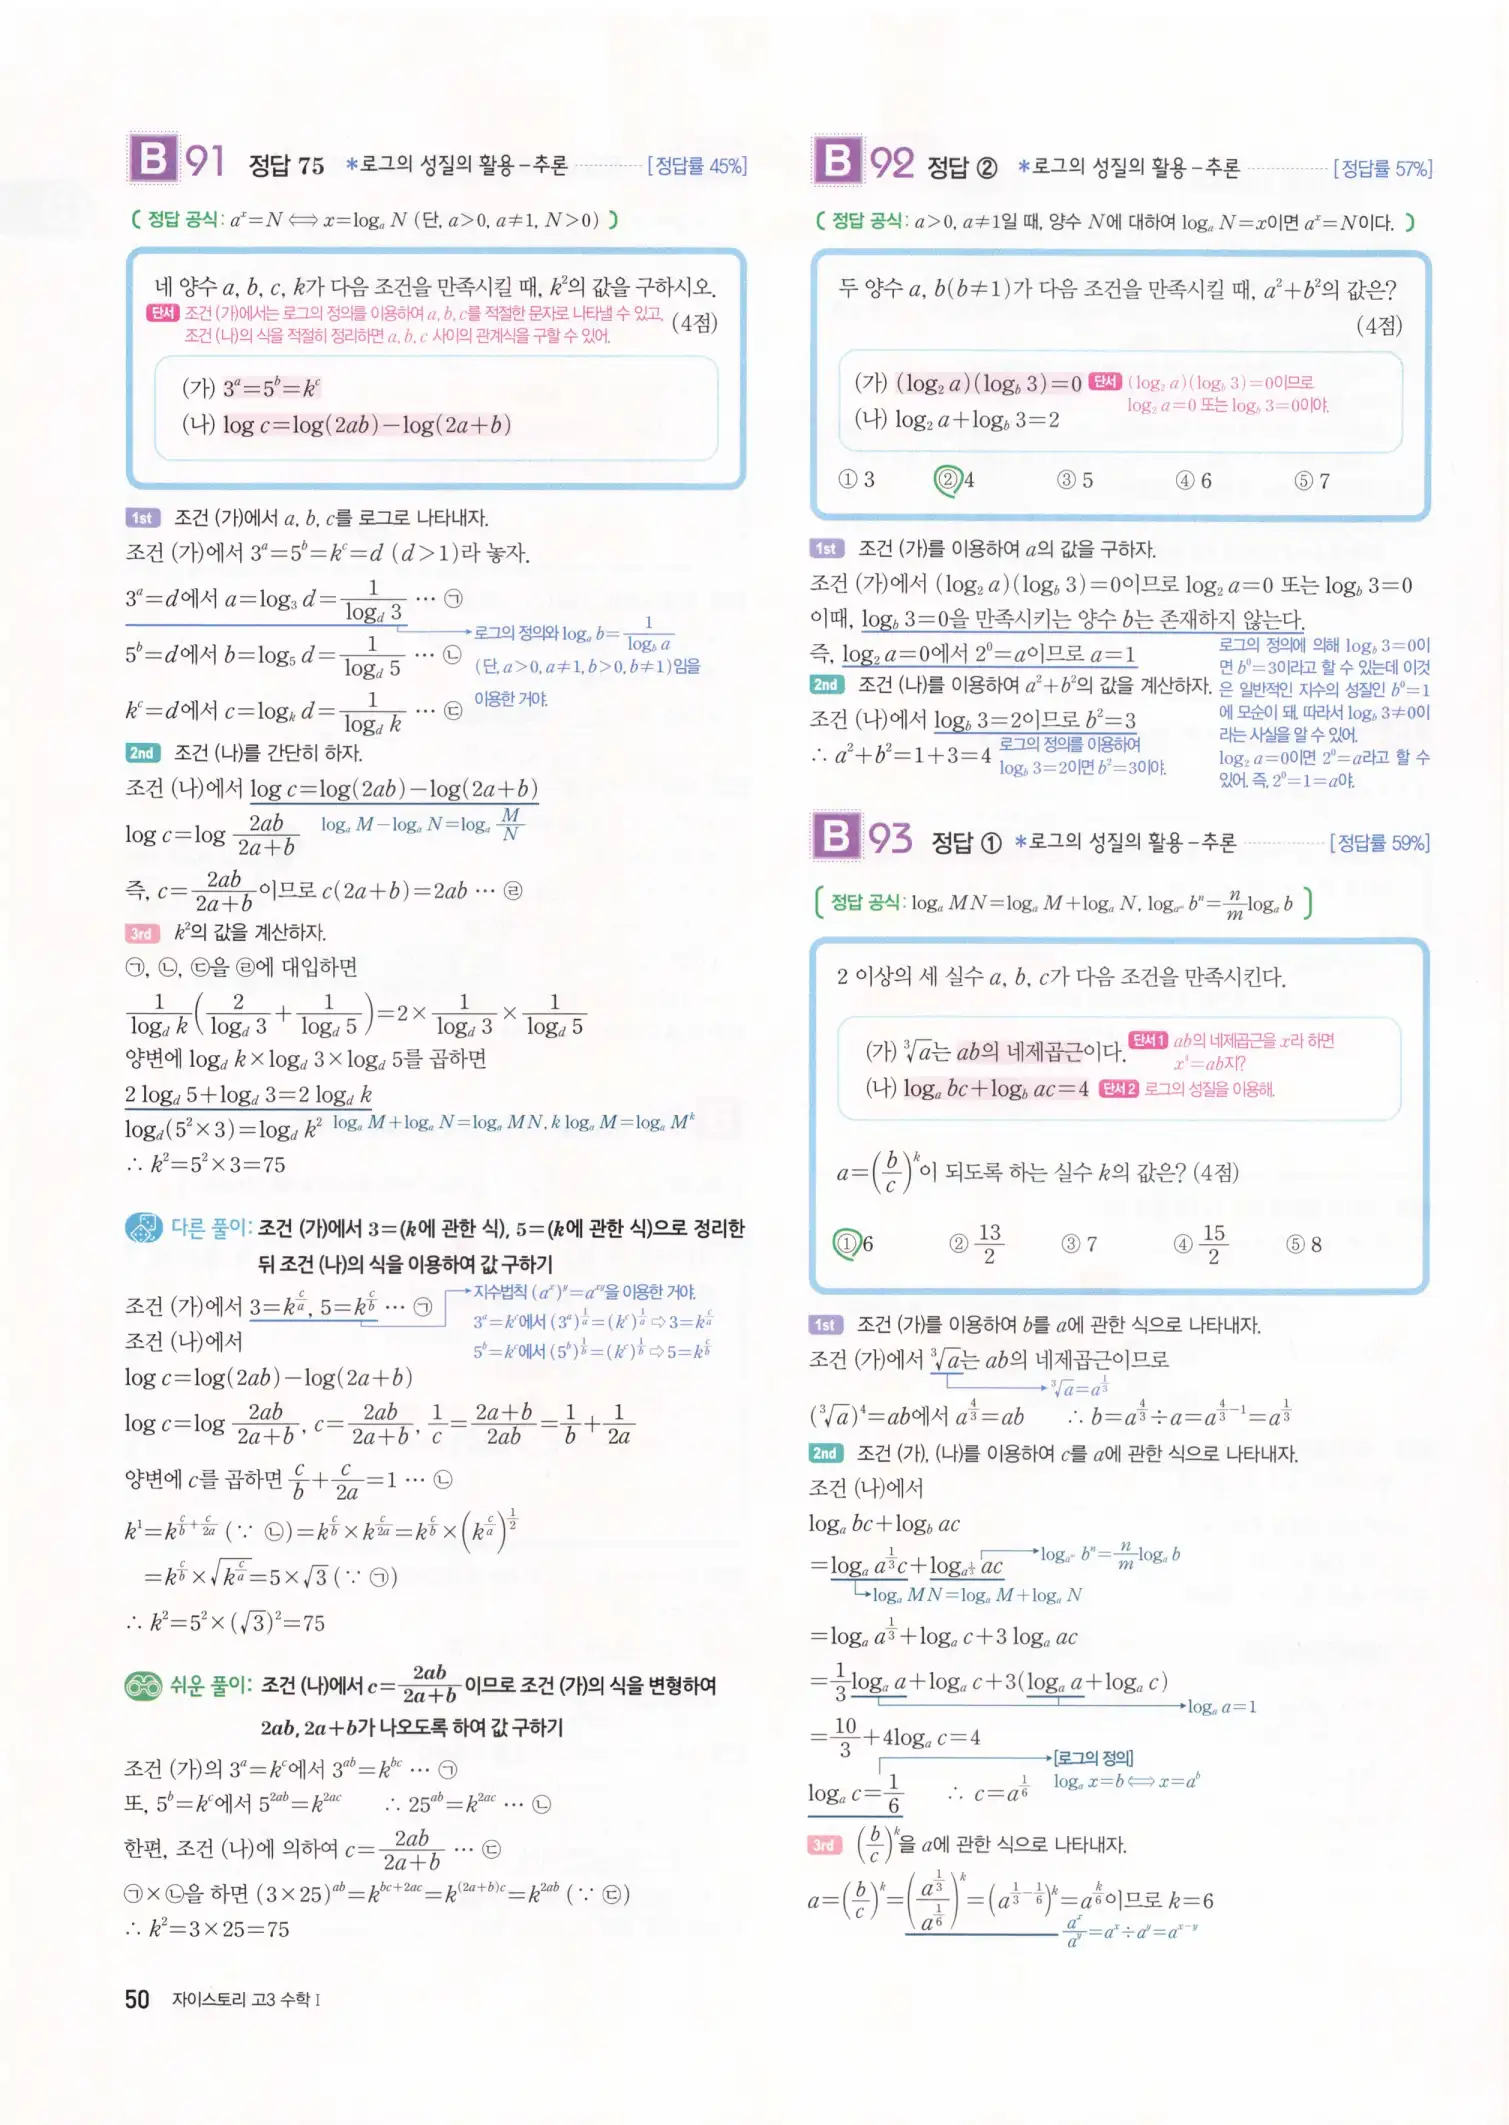 B 91 정답 75 *로그의 성질의 활용-추론 [정답률 45%]
( 정답 공식: aˣ=N ⟺ x=logₐ N (단, a>0, a≠1, N>0) )
네 양수 a, b, c, k가 다음 조건을 만족시킬 때, k²의 값을 구하시오.
단서 조건 (가)에서는 로그의 정의를 이용하여 a, b, c를 적절한 문자로 나타낼 수 있고,
조건 (나)의 식을 적절히 정리하면 a, b, c 사이의 관계식을 구할 수 있어. (4점)
(가) 3^a=5^b=k^c
(나) log c=log(2ab)-log(2a+b)
1st 조건 (가)에서 a, b, c를 로그로 나타내자.
조건 (가)에서 3^a=5^b=k^c=d (d>1)라 놓자.
3^a=d에서 a=log_3 d=1/(log_d 3) … ㉠
5^b=d에서 b=log_5 d=1/(log_d 5) … ㉡
로그의 정의와 log_a b=1/(log_b a)
(단, a>0, a≠1, b>0, b≠1)임을
이용한 거야.
k^c=d에서 c=log_k d=1/(log_d k) … ㉢
2nd 조건 (나)를 간단히 하자.
조건 (나)에서 log c=log(2ab)-log(2a+b)
log c=log 2ab/(2a+b) log_a M-log_a N=log_a M/N
즉, c=2ab/(2a+b)이므로 c(2a+b)=2ab … ㉣
3rd k²의 값을 계산하자.
㉠, ㉡, ㉢을 ㉣에 대입하면
1/(log_d k) (2/(log_d 3)+1/(log_d 5))=2×1/(log_d 3)×1/(log_d 5)
양변에 log_d k×log_d 3×log_d 5를 곱하면
2 log_d 5+log_d 3=2 log_d k
log_d(5²×3)=log_d k² log_a M+log_a N=log_a MN, k log_a M=log_a M^k
∴ k²=5²×3=75
다른 풀이: 조건 (가)에서 3=(k에 관한 식), 5=(k에 관한 식)으로 정리한
뒤 조건 (나)의 식을 이용하여 값 구하기
조건 (가)에서 3=k^(c/a), 5=k^(c/b) … ㉠
지수법칙 (a^x)^y=a^(xy)을 이용한 거야.
3^a=k^c에서 (3^a)^(1/a)=(k^c)^(1/a) ⇨ 3=k^(c/a)
5^b=k^c에서 (5^b)^(1/b)=(k^c)^(1/b) ⇨ 5=k^(c/b)
조건 (나)에서
log c=log(2ab)-log(2a+b)
log c=log 2ab/(2a+b), c=2ab/(2a+b), 1/c=(2a+b)/2ab=1/b+1/2a
양변에 c를 곱하면 c/b+c/2a=1 … ㉡
k¹=k^(c/b+c/2a) (∵ ㉡)=k^(c/b)×k^(c/2a)=k^(c/b)×(k^(c/a))^(1/2)
=k^(c/b)×√(k^(c/a))=5×√3 (∵ ㉠)
∴ k²=5²×(√3)²=75
쉬운 풀이: 조건 (나)에서 c=2ab/(2a+b)이므로 조건 (가)의 식을 변형하여
2ab, 2a+b가 나오도록 하여 값 구하기
조건 (가)의 3^a=k^c에서 3^(ab)=k^(bc) … ㉠
또, 5^b=k^c에서 5^(2ab)=k^(2ac) ∴ 25^(ab)=k^(2ac) … ㉡
한편, 조건 (나)에 의하여 c=2ab/(2a+b) … ㉢
㉠×㉡을 하면 (3×25)^(ab)=k^(bc+2ac)=k^((2a+b)c)=k^(2ab) (∵ ㉢)
∴ k²=3×25=75
50 자이스토리 고3 수학 I
B 92 정답 ② *로그의 성질의 활용-추론 [정답률 57%]
( 정답 공식: a>0, a≠1일 때, 양수 N에 대하여 log_a N=x이면 a^x=N이다. )
두 양수 a, b(b≠1)가 다음 조건을 만족시킬 때, a²+b²의 값은?
(4점)
(가) (log_2 a)(log_b 3)=0 단서 (log_2 a)(log_b 3)=0이므로
log_2 a=0 또는 log_b 3=0이야.
(나) log_2 a+log_b 3=2
① 3 ② 4 ③ 5 ④ 6 ⑤ 7
1st 조건 (가)를 이용하여 a의 값을 구하자.
조건 (가)에서 (log_2 a)(log_b 3)=0이므로 log_2 a=0 또는 log_b 3=0
이때, log_b 3=0을 만족시키는 양수 b는 존재하지 않는다.
즉, log_2 a=0에서 2⁰=a이므로 a=1
2nd 조건 (나)를 이용하여 a²+b²의 값을 계산하자.
조건 (나)에서 log_b 3=2이므로 b²=3
∴ a²+b²=1+3=4
로그의 정의를 이용하여
log_b 3=2이면 b²=3이야.
로그의 정의에 의해 log_b 3=0이
면 b⁰=3이라고 할 수 있는데 이것
은 일반적인 지수의 성질인 b⁰=1
에 모순이 돼. 따라서 log_b 3≠0이
라는 사실을 알 수 있어.
log_2 a=0이면 2⁰=a라고 할 수
있어. 즉, 2⁰=1=a야.
B 93 정답 ① *로그의 성질의 활용-추론 [정답률 59%]
( 정답 공식: log_a MN=log_a M+log_a N, log_(a^m) b^n=n/m log_a b )
2 이상의 세 실수 a, b, c가 다음 조건을 만족시킨다.
(가) ³√a는 ab의 네제곱근이다. 단서1 ab의 네제곱근을 x라 하면
x⁴=ab지?
(나) log_a bc+log_b ac=4 단서2 로그의 성질을 이용해.
a=(b/c)^k이 되도록 하는 실수 k의 값은? (4점)
① 6 ② 13/2 ③ 7 ④ 15/2 ⑤ 8
1st 조건 (가)를 이용하여 b를 a에 관한 식으로 나타내자.
조건 (가)에서 ³√a는 ab의 네제곱근이므로
³√a=a^(1/3)
(³√a)⁴=ab에서 a^(4/3)=ab ∴ b=a^(4/3)÷a=a^(4/3-1)=a^(1/3)
2nd 조건 (가), (나)를 이용하여 c를 a에 관한 식으로 나타내자.
조건 (나)에서
log_a bc+log_b ac
=log_a a^(1/3)c+log_(a^(1/3)) ac log_(a^m) b^n=n/m log_a b
log_a MN=log_a M+log_a N
=log_a a^(1/3)+log_a c+3 log_a ac
=1/3 log_a a+log_a c+3(log_a a+log_a c)
log_a a=1
=10/3+4log_a c=4
[로그의 정의]
log_a x=b ⟺ x=a^b
log_a c=1/6 ∴ c=a^(1/6)
3rd (b/c)^k을 a에 관한 식으로 나타내자.
a=(b/c)^k=(a^(1/3)/a^(1/6))^k=(a^(1/3-1/6))^k=a^(k/6)이므로 k=6
a^x/a^y=a^x÷a^y=a^(x-y)